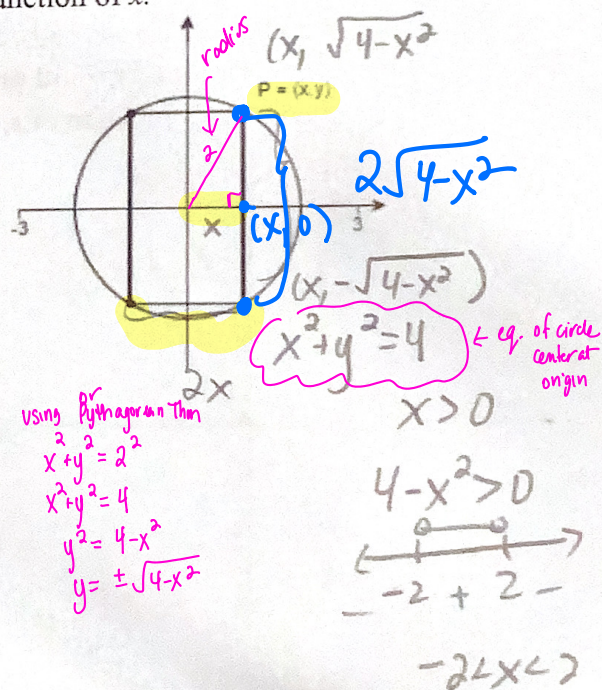 nction of x.
radius
(x, √4-x²
P = (x,y)
2
2√4-x²
-3
x
(x, 0)
3
(x, -√4-x²)
x²+y²=4
← eq. of circle
center at
origin
2x
x>0
using Pythagorean Thm
x²+y²=2²
x²+y²=4
y²=4-x²
y=±√4-x²
4-x²>0
- -2 + 2 -
-2<x<2